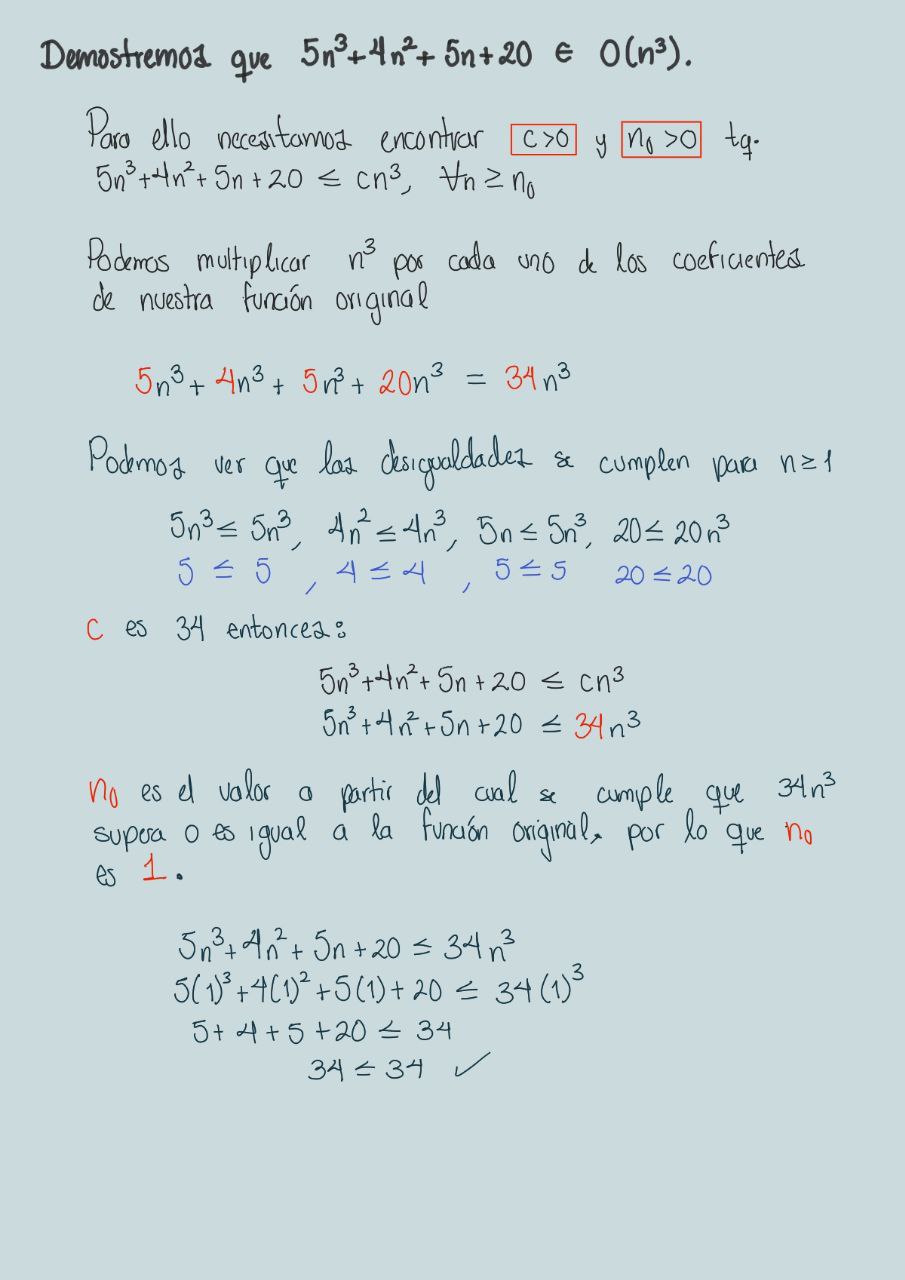 Demostremos que 5n³+4n²+5n+20 ∈ O(n³).
Para ello necesitamos encontrar c>0 y n₀>0 tq.
5n³+4n²+5n+20 ≤ cn³, ∀n ≥ n₀
Podemos multiplicar n³ por cada uno de los coeficientes
de nuestra función original
5n³+ 4n³ + 5n³+ 20n³ = 34n³
Podemos ver que las desigualdades se cumplen para n≥1
5n³ ≤ 5n³, 4n² ≤ 4n³, 5n ≤ 5n³, 20 ≤ 20n³
5 ≤ 5 , 4 ≤ 4 , 5 ≤ 5 20 ≤ 20
C es 34 entonces:
5n³+4n²+5n+20 ≤ cn³
5n³+4n²+5n+20 ≤ 34n³
n₀ es el valor a partir del cual se cumple que 34n³
supera o es igual a la función original, por lo que n₀
es 1.
5n³+4n²+5n+20 ≤ 34n³
5(1)³+4(1)²+5(1)+20 ≤ 34(1)³
5+4+5+20 ≤ 34
34 ≤ 34 ✓